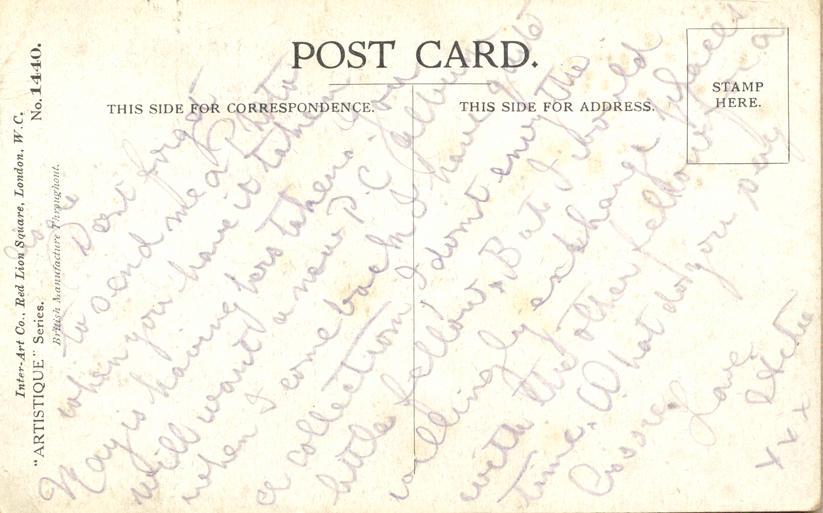 POST CARD.
THIS SIDE FOR CORRESPONDENCE.
THIS SIDE FOR ADDRESS.
STAMP
HERE.
Inter-Art Co., Red Lion Square, London, W.C.
"ARTISTIQUE" Series.
No. 1440.
British Manufacture Throughout.
Dont forget
to send me a Photo
when you have it taken
May is having hers taken. You
will want a new P.C album
when I come back I have quite
a collection I dont envy the
little fellow. But I would
willingly exchange places
with the other fellow for a
time. What do you say
Love
xxx